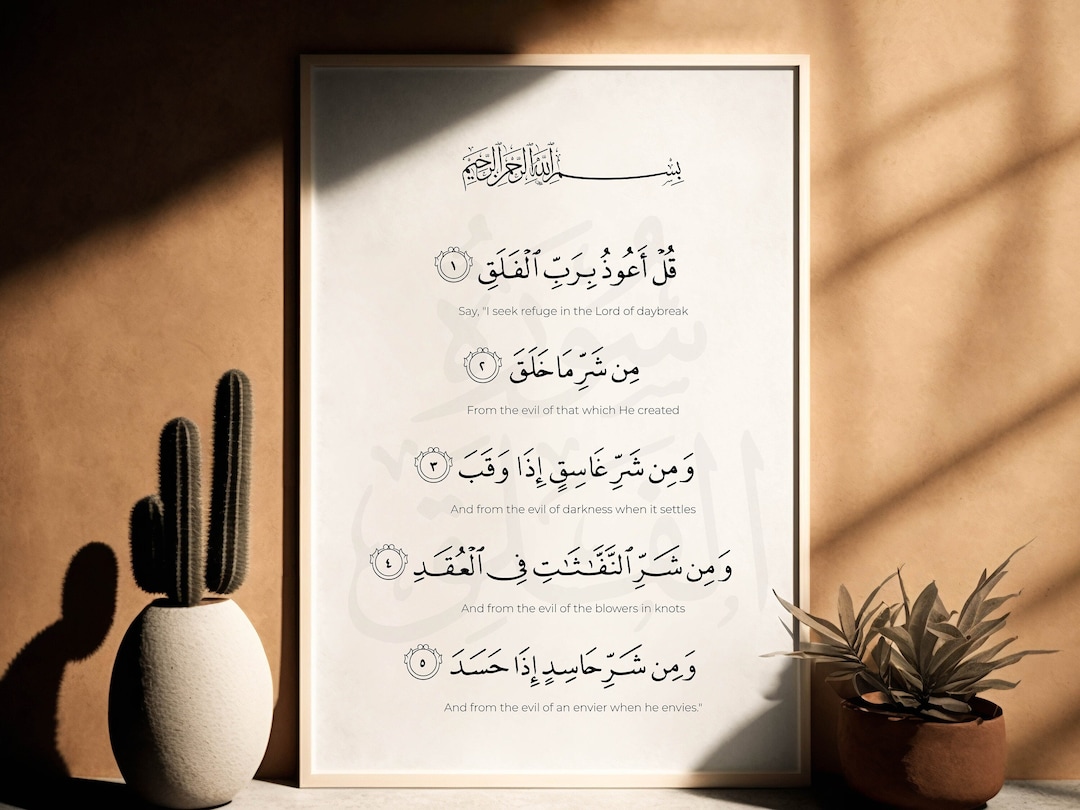 بِسْمِ ٱللَّهِ ٱلرَّحْمَٰنِ ٱلرَّحِيمِ
قُلْ أَعُوذُ بِرَبِّ ٱلْفَلَقِ ١
Say, "I seek refuge in the Lord of daybreak
مِن شَرِّ مَا خَلَقَ ٢
From the evil of that which He created
وَمِن شَرِّ غَاسِقٍ إِذَا وَقَبَ ٣
And from the evil of darkness when it settles
وَمِن شَرِّ ٱلنَّفَّٰثَٰتِ فِى ٱلْعُقَدِ ٤
And from the evil of the blowers in knots
وَمِن شَرِّ حَاسِدٍ إِذَا حَسَدَ ٥
And from the evil of an envier when he envies."
سُورَة
الفَلَق